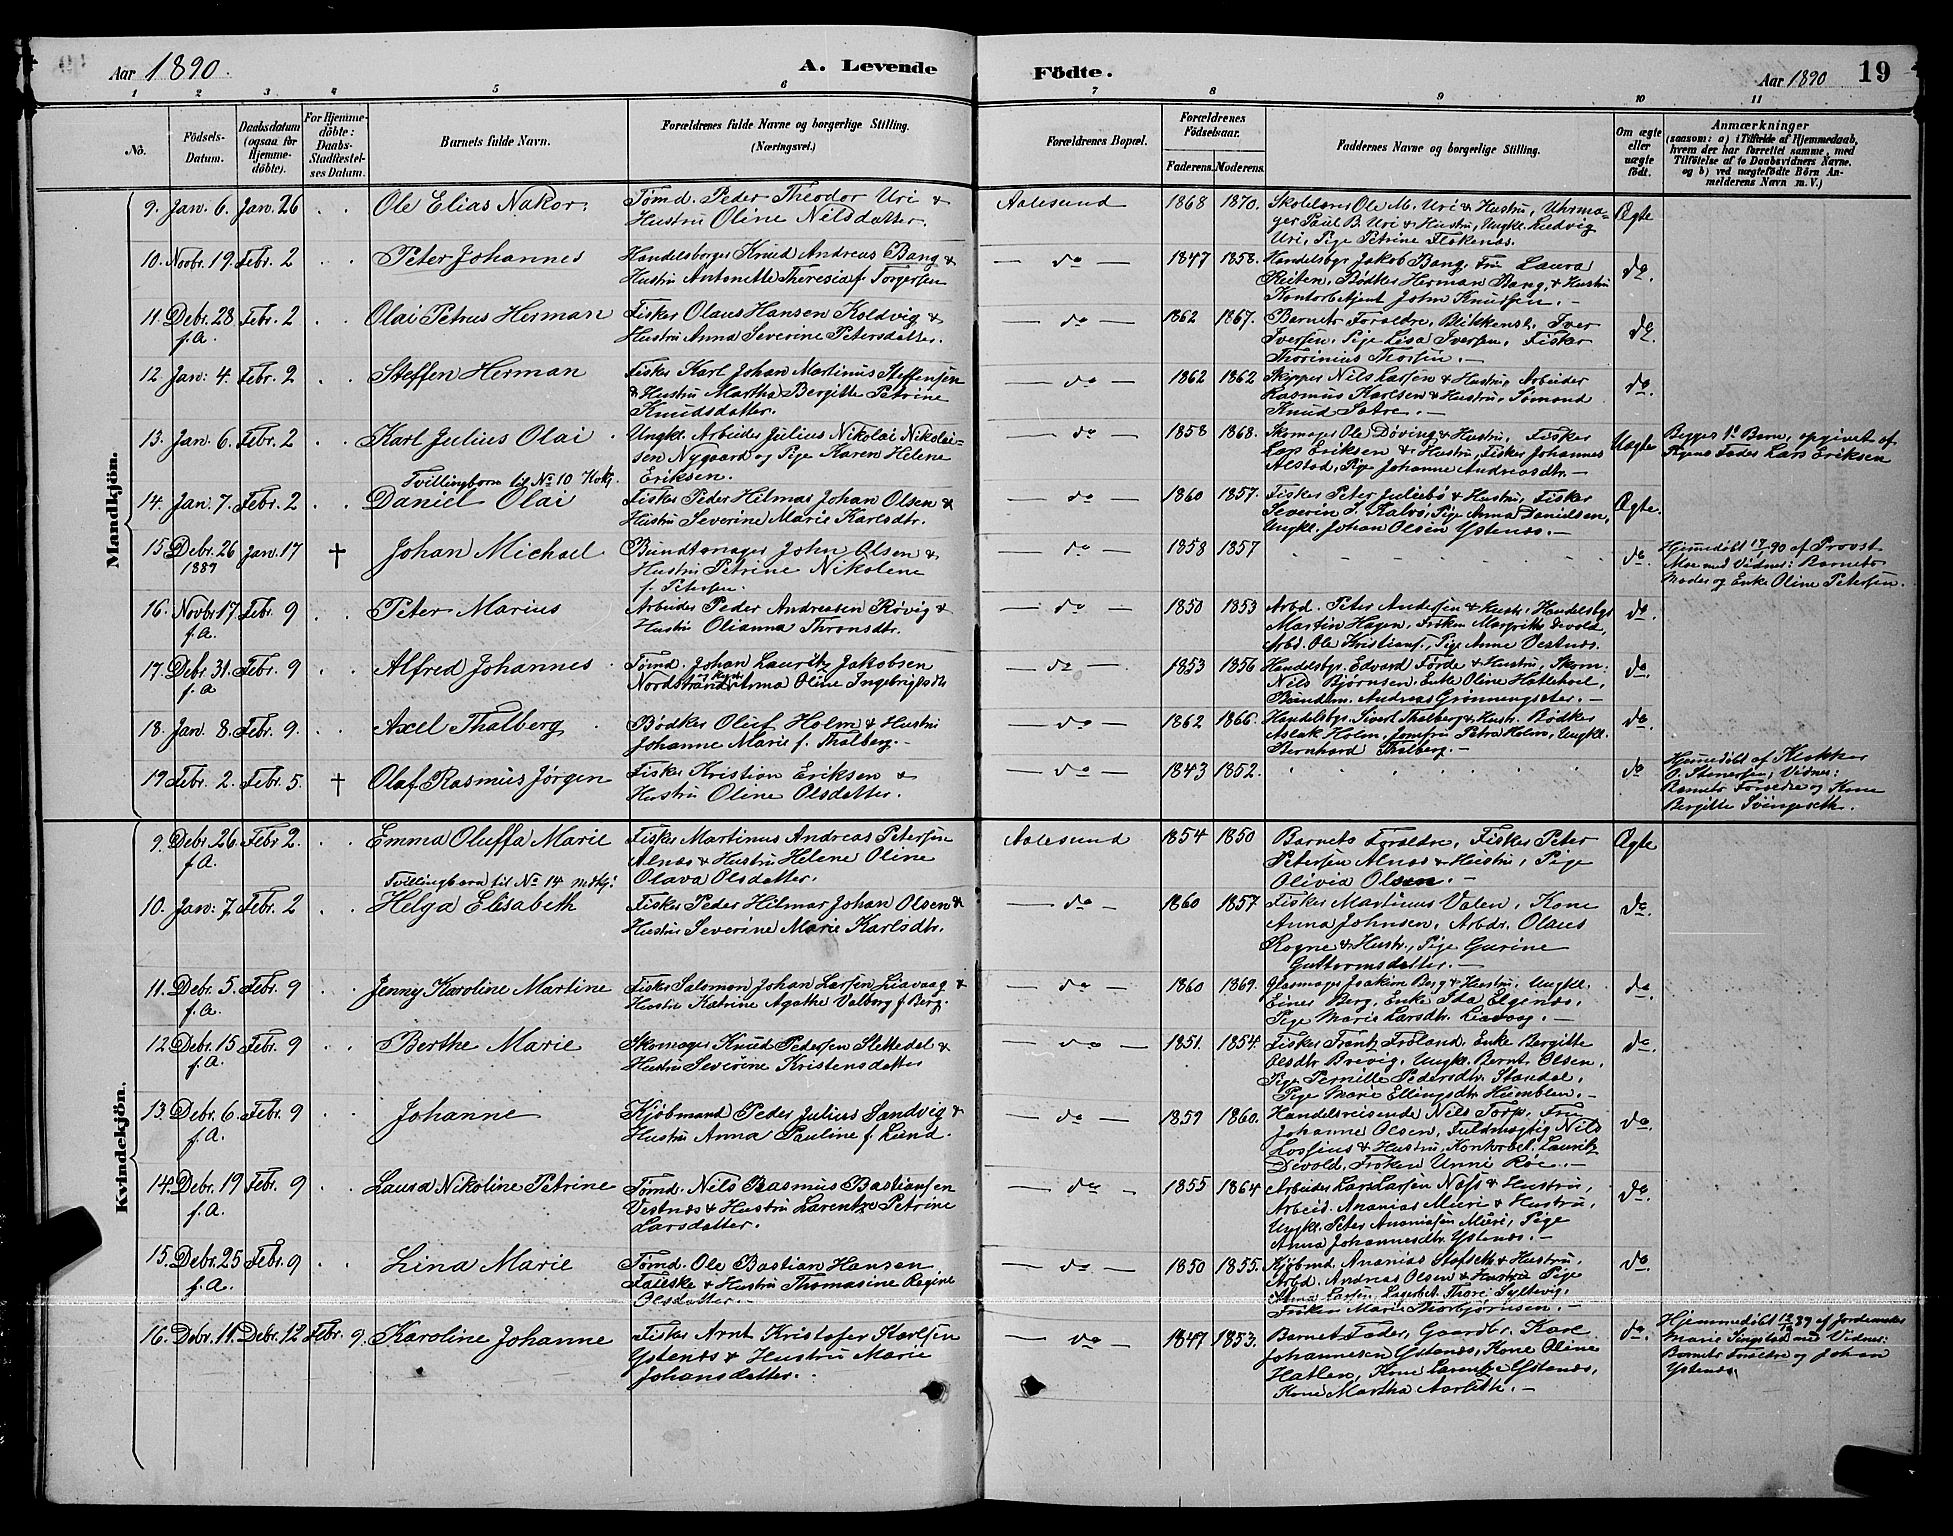 Aar 1890. A. Levende Födte. Aar 1890 19
1 2 3 4 5 6 7 8 9 10 11
No. Födsels-Datum. Daabsdatum (ogsaa for Hjemme-döbte). For Hjemme-döbte: Daabs-Stadfæstel-ses Datum. Barnets fulde Navn. Forældrenes fulde Navne og borgerlige Stilling. (Næringsvei.) Forældrenes Bopæl. Forældrenes Födselsaar. Faderens. Moderens. Faddernes Navne og borgerlige Stilling. Om ægte eller uægte födt. Anmærkninger
(saasom: a) i Tilfælde af Hjemmedaab,
hvem der har forrettet samme, med
Tilföielse af to Daabsvidners Navne.
og b) ved uægtefödte Börn An-
melderens Navn m. V.)
Mandkjön.
9. Jan. 6. Jan. 26 Ole Elias Nakor. Tømd. Peder Theodor Uri &
Hustru Oline Nilsdatter. Aalesund 1868 1870. Skolelærer Ole M. Uri & Hustru, Uhrma-
ger Paul B. Uri & Hustru, Ungkl. Ludvig
Uri, Pige Petrine Flokenæs. Ægte
10. Novbr. 19. Febr. 2 Peter Johannes Handelsborger Knud Andreas Bang &
Hustru Antonette Theresia f. Torgersen — do — 1847 1858. Handelsbgr. Jakob Bang, Fru Laura
Reiten, Bødker Herman Bang & Hustru
Kontorbetjent John Knutsen. — do.
11 Debr. 28 Febr. 2
f. A. Olai Petrus Herman Fisker Olaus Hansen Koldvig &
Hustru Anna Severine Petersdatter. — do — 1862 1867. Barnets Forældre, Blikkensl. Iver
Iversen, Pige Lisa Iversen, Fisker
Thorinius Thorsen. — do.
12 Jan: 4. Febr. 2 Steffen Herman Fisker Karl Johan Martinus Steffensen
& Hustru Martha Bergitte Petrine
Knudsdatter. — do — 1862 1862 Skipper Nils Larsen & Hustru, Arbeider
Rasmus Karlsen & Hustru, Sømand
Knud Sætre. — do.
13. Jan. 6. Febr. 2 Karl Julius Olai Ungkl. Arbeider Julius Nikolai Nikolai-
sen Nygaard og Pige Karen Helene
Eriksen. — do — 1858 1868. Skomager Ole Døving & Hustru, Fisker
Lars Eriksen & Hustru, Fisker Johannes
Alstad, Pige Johanne Andreasdtr. — Uægte Begges 1ste Barn, opgivet af
Pigens Fader Lars Eriksen
Tvillingbarn til No 10 Kvkj.
14. Jan. 7. Febr. 2 Daniel Olai Fisker Peder Hilmar Johan Olsen &
Hustru Severine Marie Karlsdtr. — do — 1860 1857. Fisker Peter Juliebø & Hustru, Fisker
Severin J. Kalvø, Pige Anna Danielsen,
Ungkl. Johan Olsen Ystenæs. — Ægte.
15 Debr. 26 Jan. 17 †
1889 Johan Michael Bundtmager John Olsen &
Hustru Petrine Nikolene
f. Petersen. — do — 1858 1857 do. Hjemmedøbt 17/1 90 af Provst
Moe med Vidner: Barnets
Moder og Enke Oline Petersen.
16. Novbr. 17 Febr. 9
f. A. Peter Marius Arbeider Peder Andreasen Røvig &
Hustru Olianna Thronsdtr. — do — 1850 1853 Arbd. Peter Andersen & Hustr., Handelsbgr
Martin Hagen, Frøken Margrethe Devold,
Arbd. Ole Kristians., Pige Anne Vestnæs. do.
17. Debr. 31. Febr. 9
f. A Alfred Johannes Tømd. Johan Lauritz Jakobsen
Nordstrand Anna Oline Ingebrigtsdtr — do — 1853 1856 Handelsbgr. Edvard Førde & Hustru, Skom.
Nils Bjørnsen, Enke Oline Hatlehol,
Bundtm. Andreas Grønningsæter. — do.
18. Jan. 8. Febr. 9. Axel Thalberg Bødker Oluf Holm & Hustru
Johanne Marie f. Thalberg. — — do — 1862 1866. Handelsbgr. Sivert Thalberg & Hustr. Bødker
Aslak Holm, Jomfru Petra Holm, Ungkl.
Bernhard Thalberg. — do
19 Febr. 2. Febr. 5. † Olaf Rasmus Jørgen Fisker Kristian Eriksen &
Hustru Oline Olsdatter. — do — 1843 1852. do Hjemmedøbt af Klokker
O. Stenersen; Vidner:
Barnets Forældre og Kone
Bergitte Svingeseth.
Kvindekjön.
9. Debr. 26. Febr 2.
f. A. Emma Oluffa Marie Fisker Martinus Andreas Petersen
Alnæs & Hustru Helene Oline
Olava Olsdatter. Aalesund 1854 1850 Barnets Forældre, Fisker Peter
Petersen Alnæs & Hustru, Pige
Olivia Olsen. — Ægte
Tvillingbarn til No 14 Mdkj:
10. Jan: 7. Febr. 2 Helga Elisabeth Fisker Peder Hilmar Johan Olsen &
Hustru Severine Marie Karlsdtr. — do — 1860 1857 Fisker Martinus Valen, Kone
Anna Johnsen, Arbdr. Olaus
Rogne & Hustr., Pige Gurine
Guttormsdatter. — do.
11. Debr. 5. Febr. 9
f. A. Jenny Karoline Martine Fisker Salomon Johan Larsen Liavaag &
Hustru Katrine Agathe Valborg f. Berg. — do — 1860 1869. Glasmager Joakim Berg & Hustru, Ungkl.
Einar Berg, Enke Ida Elgenæs,
Pige Marie Larsdtr. Liavaag. — do.
12 Debr. 15 Febr. 9
f. A. Berthe Marie Skomager Knud Pedersen Slettedal &
Hustru Severine Kristensdatter — do — 1851. 1854. Fisker Frantz Frøland, Enke Bergitte
Olsdtr Brevig, Ungkl. Bernt Olsen,
Pige Pernille Pedersdtr. Standal,
Pige Marie Ellingsdtr. Humblen. — do.
13. Debr. 6. Febr. 9
f. A. Johanne Kjøbmand Peder Julius Sandvig &
Hustru Anna Pauline f. Lund. — do — 1859 1860. Handelsreisende Nils Torp, Fru
Johanne Olsen, Fuldmægtig Nils
Lossius & Hustru, Kontorbet. Lauritz
Devold, Frøken Unni Røe. — do.
14. Debr. 19 Febr. 9
f. A. Laura Nikoline Petrine Tømd. Nils Rasmus Bastiansen
Vestnæs & Hustru Larentze Petrine
Larsdatter. — do — 1855 1864 Arbeider Lars Larsen Næss & Hustru,
Arbeid. Ananias Muri & Hustru,
Ungkl. Peter Ananiasen Muri, Pige
Anna Johannesdtr. Ystenæs. — do.
15. Debr. 25 Febr. 9
f. A. Lina Marie Tømd. Ole Bastian Hansen
Faleske & Hustru Thomasine Regine
Olsdatter. — — do — 1850 1855. Kjøbmd. Ananias Stafseth & Hustru,
Arbd. Andreas Olsen & Hustru Pige
Larsen, Lagerbt. Thore Syltevig,
Frøken Marie Thorbjørnsen. — do.
16. Debr. 11. Debr. 12 Febr. 9. Karoline Johanne Fisker Arnt Kristofer Karlsen
Ystenæs & Hustru Marie
Johansdatter. — do — 1847 1853. Barnets Fader, Gaardbr. Karl
Johannesen Ystenæs, Kone Oline
Hatlen, Kone Larentze Ystenæs,
Kone Martha Aarseth. — do. Hjemmedøbt 12/12 89 af Jordemoder
Marie Singstad med Vidner:
Barnets Forældre og Johan
Ystenæs